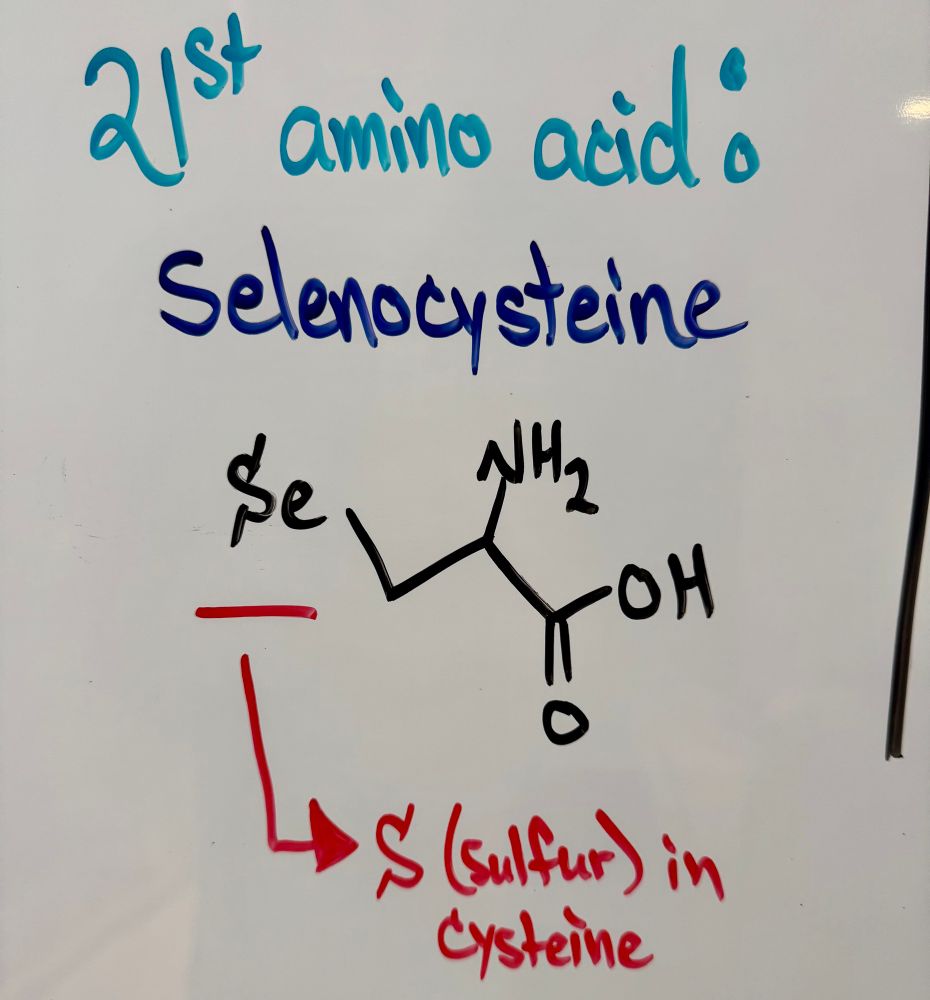 21st amino acid:
Selenocysteine
NH2
Se
OH
O
S (sulfur) in
cysteine